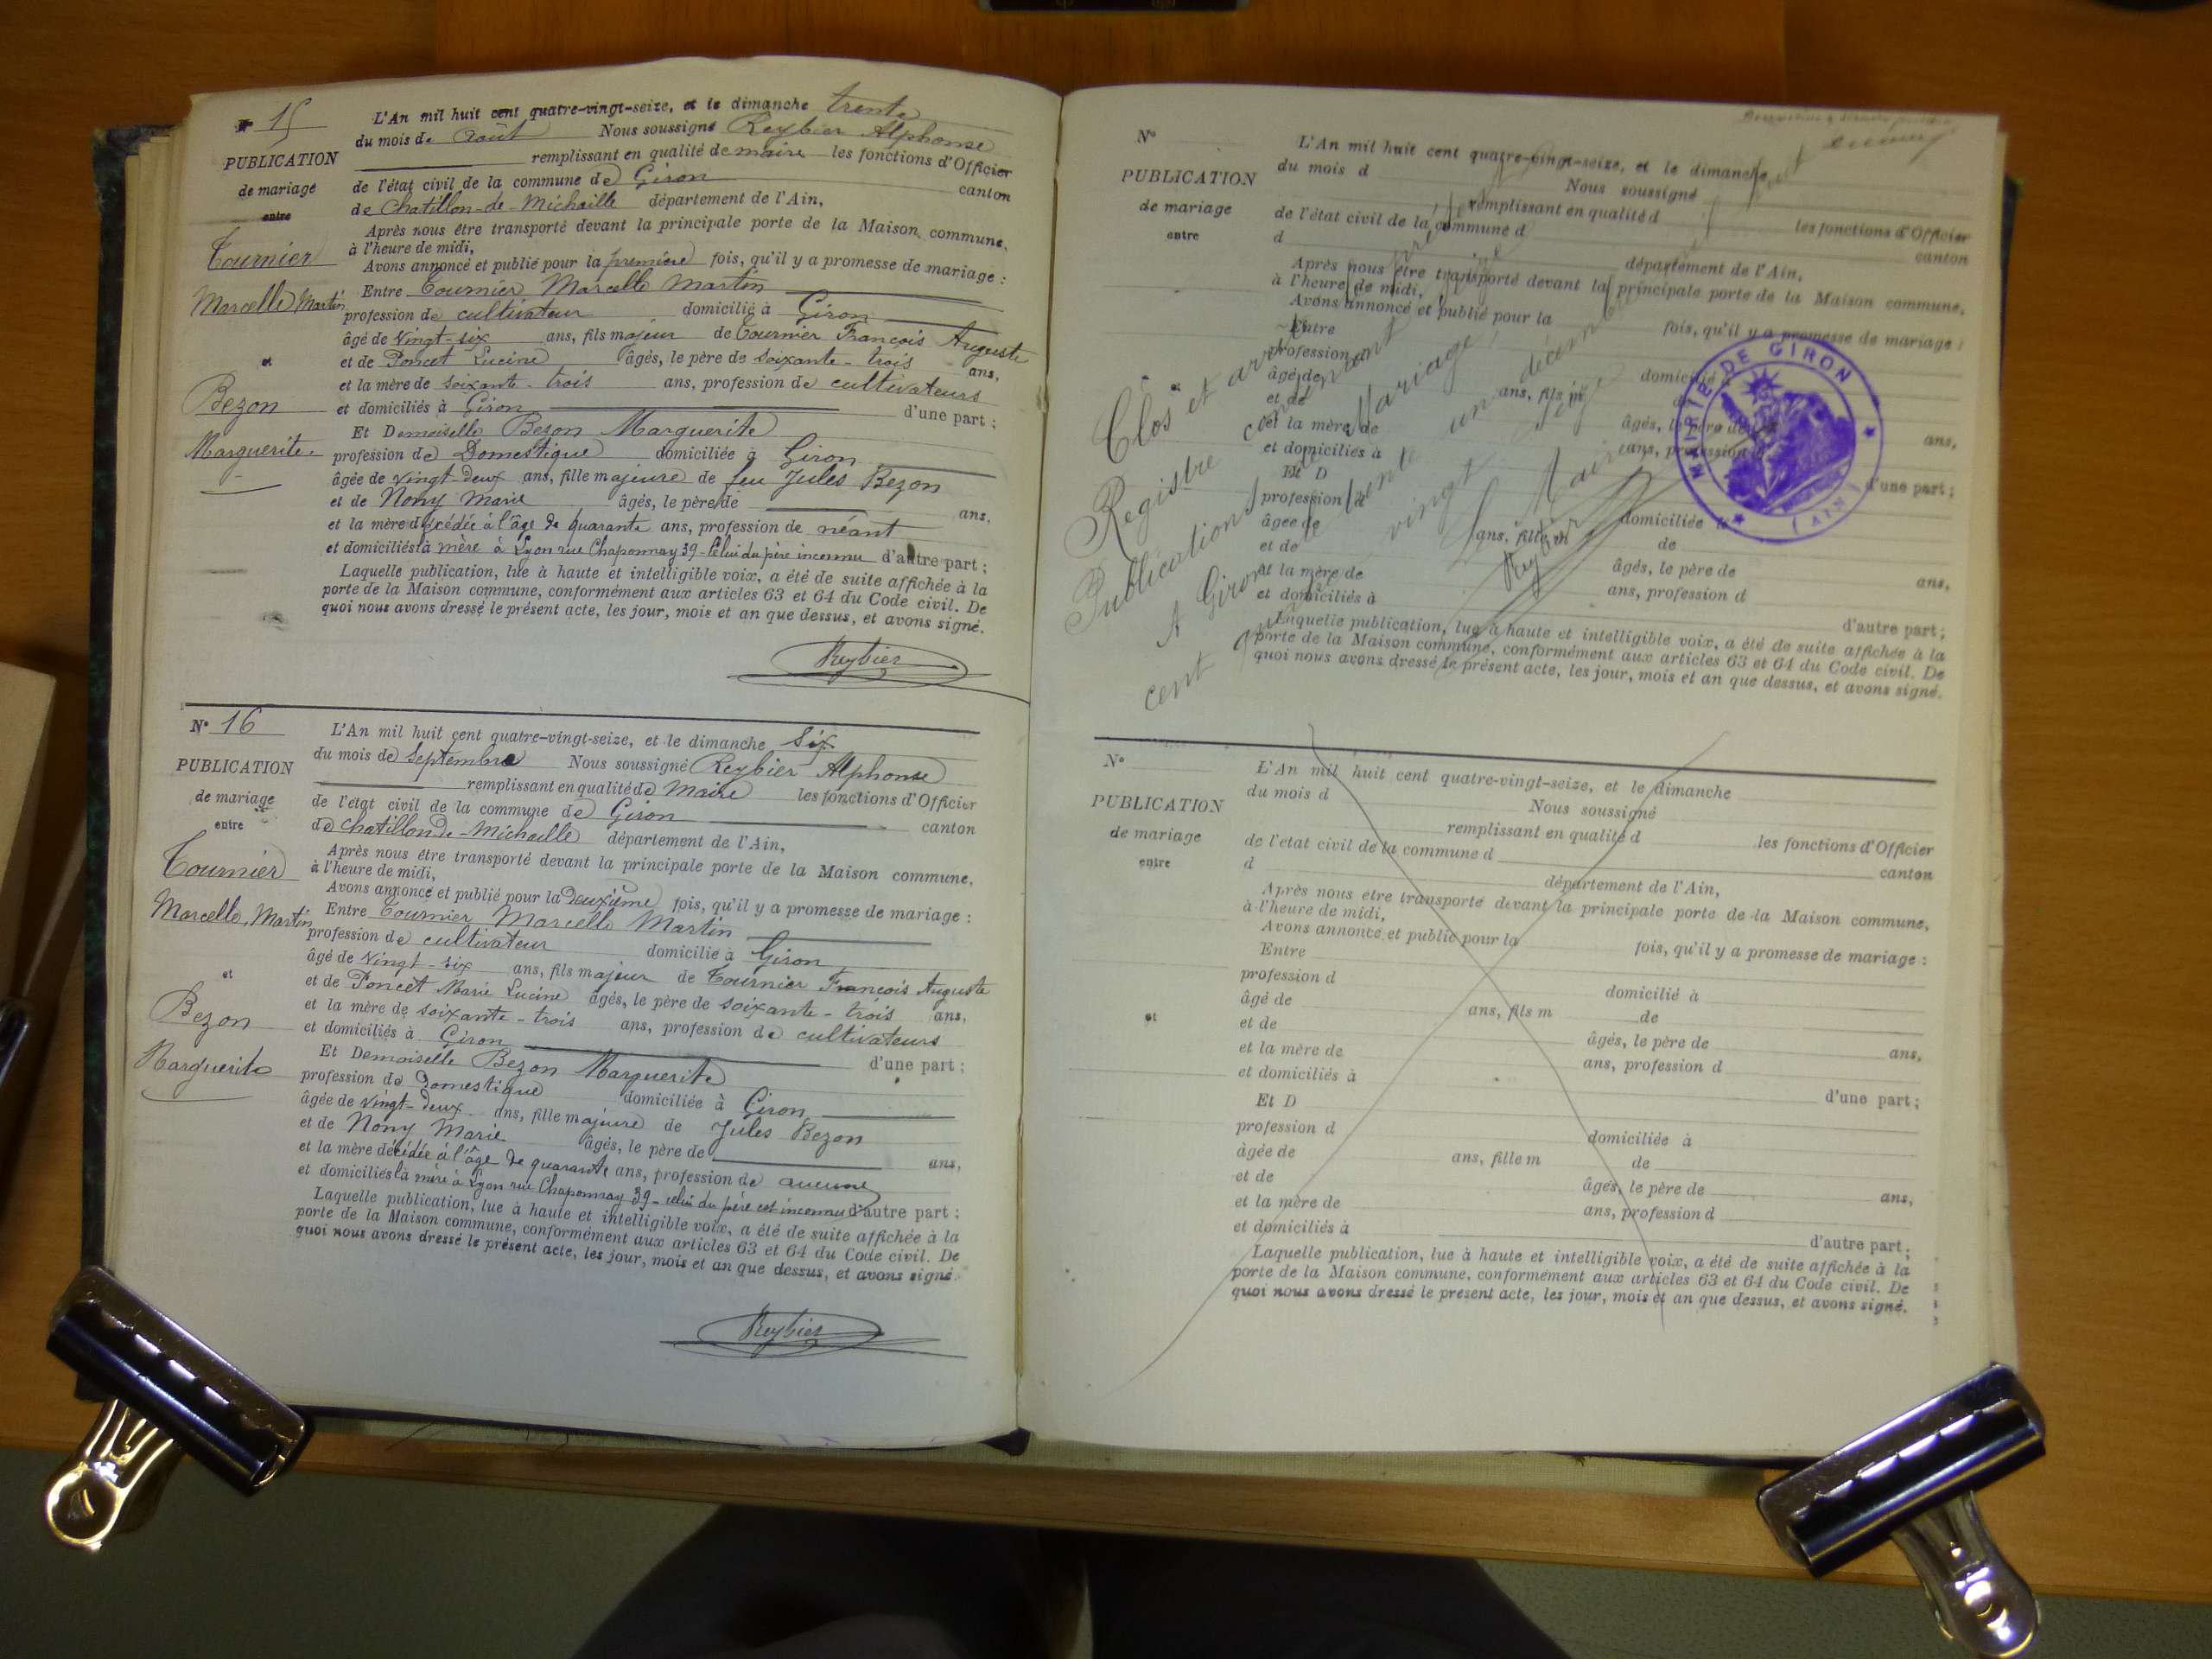 N° 15
PUBLICATION
de mariage
entre
Tournier
Marcelle Martin
et
Bezon
Marguerite
L'An mil huit cent quatre-vingt-seize, et le dimanche trente
du mois de Août Nous soussigné Reybier Alphonse
remplissant en qualité de maire les fonctions d'Officier
de l'état civil de la commune de Giron canton
de Chatillon-de-Michaille département de l'Ain,
Après nous être transporté devant la principale porte de la Maison commune,
à l'heure de midi,
Avons annoncé et publié pour la première fois, qu'il y a promesse de mariage :
Entre Tournier Marcelle Martin
profession de cultivateur domicilié à Giron
âgé de vingt-six ans, fils majeur de Tournier François Auguste
et de Poncet Lucine âgés, le père de soixante-trois ans,
et la mère de soixante-trois ans, profession de cultivateurs
et domiciliés à Giron d'une part ;
Et Demoiselle Bezon Marguerite
profession de Domestique domiciliée à Giron
âgée de vingt-deux ans, fille majeure de feu Jules Bezon
et de Nony Marie âgés, le père de ans,
et la mère décédée à l'âge de quarante ans, profession de néant
et domiciliés la mère à Lyon rue Chaponnay 39 - Celui du père inconnu d'autre part ;
Laquelle publication, lue à haute et intelligible voix, a été de suite affichée à la
porte de la Maison commune, conformément aux articles 63 et 64 du Code civil. De
quoi nous avons dressé le présent acte, les jour, mois et an que dessus, et avons signé.
Reybier
N° 16
PUBLICATION
de mariage
entre
Tournier
Marcelle, Martin
et
Bezon
Marguerite
L'An mil huit cent quatre-vingt-seize, et le dimanche six
du mois de Septembre Nous soussigné Reybier Alphonse
remplissant en qualité de Maire les fonctions d'Officier
de l'etat civil de la commune de Giron canton
de Chatillon-de-Michaille département de l'Ain,
Après nous être transporté devant la principale porte de la Maison commune,
à l'heure de midi,
Avons annoncé et publié pour la Deuxième fois, qu'il y a promesse de mariage :
Entre Tournier Marcelle Martin
profession de cultivateur domicilié à Giron
âgé de vingt-six ans, fils majeur de Tournier François Auguste
et de Poncet Marie Lucine âgés, le père de soixante-trois ans,
et la mère de soixante-trois ans, profession de cultivateurs
et domiciliés à Giron d'une part ;
Et Demoiselle Bezon Marguerite
profession de Domestique domiciliée à Giron
âgée de vingt-deux ans, fille majeure de Jules Bezon
et de Nony Marie âgés, le père de ans,
et la mère décédée à l'âge de quarante ans, profession de aucune
et domiciliés la mère à Lyon rue Chaponnay 39 - celui du père est inconnu d'autre part ;
Laquelle publication, lue à haute et intelligible voix, a été de suite affichée à la
porte de la Maison commune, conformément aux articles 63 et 64 du Code civil. De
quoi nous avons dressé le présent acte, les jour, mois et an que dessus, et avons signé.
Reybier
N°
PUBLICATION
de mariage
entre
et
L'An mil huit cent quatre-vingt-seize, et le dimanche
du mois d Nous soussigné
remplissant en qualité d les fonctions d'Officier
de l'état civil de la commune d canton
d département de l'Ain,
Après nous être transporté devant la principale porte de la Maison commune,
à l'heure de midi,
Avons annoncé et publié pour la fois, qu'il y a promesse de mariage :
Entre
profession d domicilié à
âgé de ans, fils m de
et de âgés, le père de ans,
et la mère de ans, profession d
et domiciliés à d'une part ;
Et D
profession d domiciliée à
âgée de ans, fille m de
et de âgés, le père de ans,
et la mère de ans, profession d
et domiciliés à d'autre part ;
Laquelle publication, lue à haute et intelligible voix, a été de suite affichée à la
porte de la Maison commune, conformément aux articles 63 et 64 du Code civil. De
quoi nous avons dressé le présent acte, les jour, mois et an que dessus, et avons signé.
Clos et arrêté
Registre
Publications de Mariage
A Giron le trente un décembre
cent quatre vingt seize
Le Maire
Reybier
MAIRIE DE GIRON
(AIN)
N°
PUBLICATION
de mariage
entre
et
L'An mil huit cent quatre-vingt-seize, et le dimanche
du mois d Nous soussigné
remplissant en qualité d les fonctions d'Officier
de l'etat civil de la commune d canton
d département de l'Ain,
Après nous etre transporté devant la principale porte de la Maison commune,
à l'heure de midi,
Avons annoncé et publié pour la fois, qu'il y a promesse de mariage :
Entre
profession d domicilié à
âgé de ans, fils m de
et de âgés, le père de ans,
et la mère de ans, profession d
et domiciliés à d'une part ;
Et D
profession d domiciliée à
âgée de ans, fille m de
et de âgés, le père de ans,
et la mère de ans, profession d
et domiciliés à d'autre part ;
Laquelle publication, lue à haute et intelligible voix, a été de suite affichée à la
porte de la Maison commune, conformément aux articles 63 et 64 du Code civil. De
quoi nous avons dressé le present acte, les jour, mois et an que dessus, et avons signé.